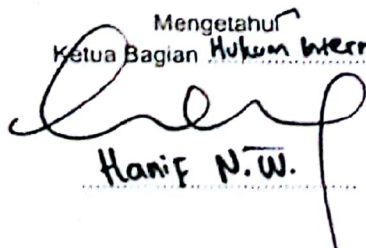 Mengetahui
Ketua Bagian Hukum Intern
Hanif N.W.